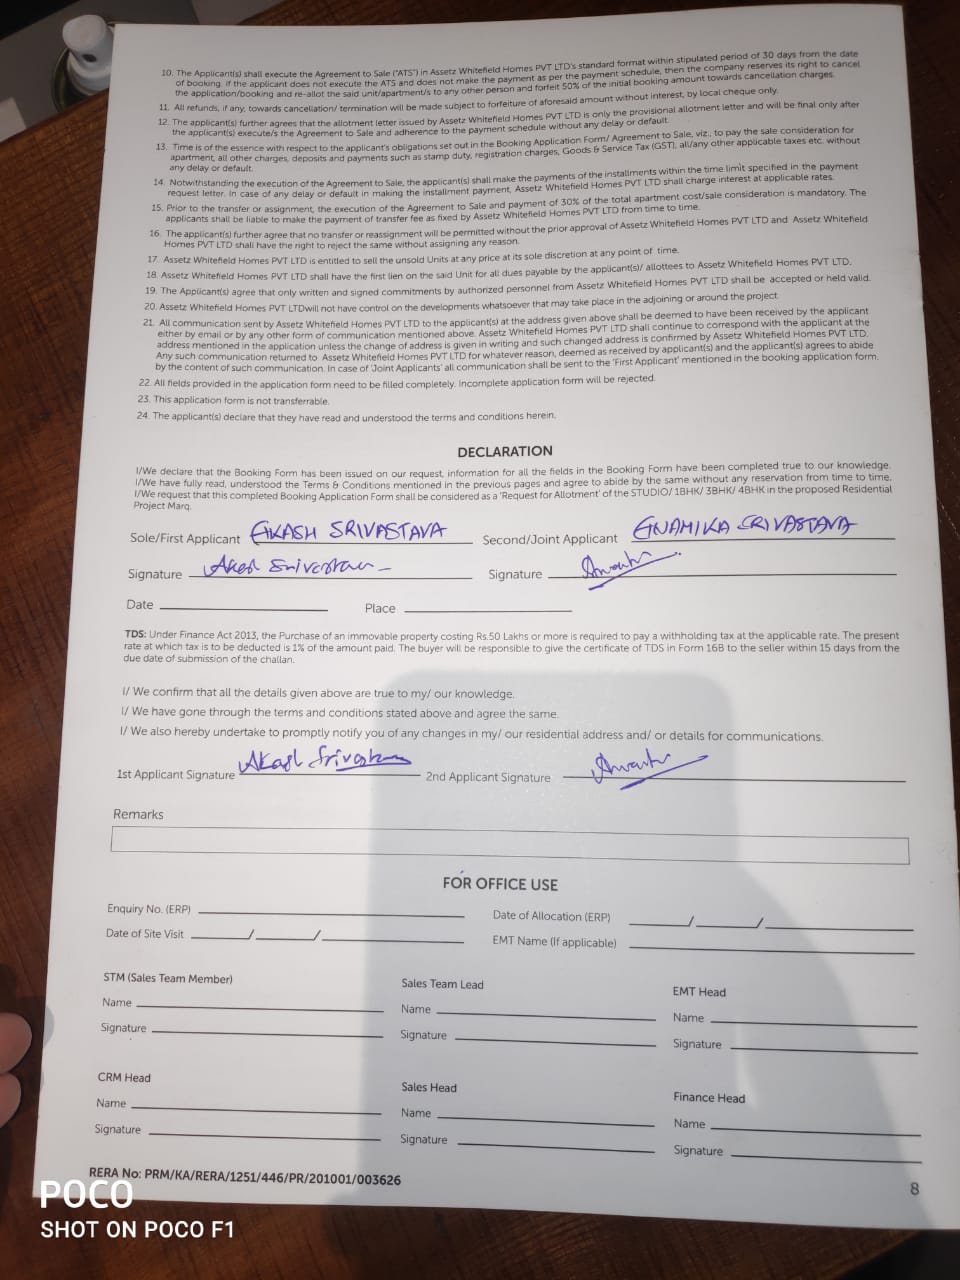 10. The Applicant(s) shall execute the Agreement to Sale ("ATS") in Assetz Whitefield Homes PVT LTD's standard format within stipulated period of 30 days from the date
of booking. if the applicant does not execute the ATS and does not make the payment as per the payment schedule, then the company reserves its right to cancel
the application/booking and re-allot the said unit/apartment/s to any other person and forfeit 50% of the initial booking amount towards cancellation charges.
11. All refunds, if any, towards cancellation/ termination will be made subject to forfeiture of aforesaid amount without interest, by local cheque only.
12. The applicant(s) further agrees that the allotment letter issued by Assetz Whitefield Homes PVT LTD is only the provisional allotment letter and will be final only after
the applicant(s) execute/s the Agreement to Sale and adherence to the payment schedule without any delay or default.
13. Time is of the essence with respect to the applicant's obligations set out in the Booking Application Form/ Agreement to Sale, viz., to pay the sale consideration for
apartment, all other charges, deposits and payments such as stamp duty, registration charges, Goods & Service Tax (GST), all/any other applicable taxes etc. without
any delay or default.
14. Notwithstanding the execution of the Agreement to Sale, the applicant(s) shall make the payments of the installments within the time limit specified in the payment
request letter. In case of any delay or default in making the installment payment, Assetz Whitefield Homes PVT LTD shall charge interest at applicable rates.
15. Prior to the transfer or assignment, the execution of the Agreement to Sale and payment of 30% of the total apartment cost/sale consideration is mandatory. The
applicants shall be liable to make the payment of transfer fee as fixed by Assetz Whitefield Homes PVT LTD from time to time.
16. The applicant(s) further agree that no transfer or reassignment will be permitted without the prior approval of Assetz Whitefield Homes PVT LTD and Assetz Whitefield
Homes PVT LTD shall have the right to reject the same without assigning any reason.
17. Assetz Whitefield Homes PVT LTD is entitled to sell the unsold Units at any price at its sole discretion at any point of time.
18. Assetz Whitefield Homes PVT LTD shall have the first lien on the said Unit for all dues payable by the applicant(s)/ allottees to Assetz Whitefield Homes PVT LTD.
19. The Applicant(s) agree that only written and signed commitments by authorized personnel from Assetz Whitefield Homes PVT LTD shall be accepted or held valid.
20. Assetz Whitefield Homes PVT LTDwill not have control on the developments whatsoever that may take place in the adjoining or around the project.
21. All communication sent by Assetz Whitefield Homes PVT LTD to the applicant(s) at the address given above shall be deemed to have been received by the applicant
either by email or by any other form of communication mentioned above. Assetz Whitefield Homes PVT LTD shall continue to correspond with the applicant at the
address mentioned in the application unless the change of address is given in writing and such changed address is confirmed by Assetz Whitefield Homes PVT LTD.
Any such communication returned to Assetz Whitefield Homes PVT LTD for whatever reason, deemed as received by applicant(s) and the applicant(s) agrees to abide
by the content of such communication. In case of 'Joint Applicants' all communication shall be sent to the 'First Applicant' mentioned in the booking application form.
22. All fields provided in the application form need to be filled completely. Incomplete application form will be rejected.
23. This application form is not transferrable.
24. The applicant(s) declare that they have read and understood the terms and conditions herein.
DECLARATION
I/We declare that the Booking Form has been issued on our request, information for all the fields in the Booking Form have been completed true to our knowledge.
I/We have fully read, understood the Terms & Conditions mentioned in the previous pages and agree to abide by the same without any reservation from time to time.
I/We request that this completed Booking Application Form shall be considered as a 'Request for Allotment' of the STUDIO/ 1BHK/ 3BHK/ 4BHK in the proposed Residential
Project Marq.
Sole/First Applicant AKASH SRIVASTAVA Second/Joint Applicant ANAMIKA SRIVASTAVA
Signature Akash Srivastava Signature
Date Place
TDS: Under Finance Act 2013, the Purchase of an immovable property costing Rs.50 Lakhs or more is required to pay a withholding tax at the applicable rate. The present
rate at which tax is to be deducted is 1% of the amount paid. The buyer will be responsible to give the certificate of TDS in Form 16B to the seller within 15 days from the
due date of submission of the challan.
I/ We confirm that all the details given above are true to my/ our knowledge.
I/ We have gone through the terms and conditions stated above and agree the same.
I/ We also hereby undertake to promptly notify you of any changes in my/ our residential address and/ or details for communications.
1st Applicant Signature Akash Srivastava 2nd Applicant Signature
Remarks
FOR OFFICE USE
Enquiry No. (ERP) Date of Allocation (ERP) / /
Date of Site Visit / / EMT Name (If applicable)
STM (Sales Team Member) Sales Team Lead EMT Head
Name Name Name
Signature Signature Signature
CRM Head Sales Head Finance Head
Name Name Name
Signature Signature Signature
RERA No: PRM/KA/RERA/1251/446/PR/201001/003626
8
POCO
SHOT ON POCO F1